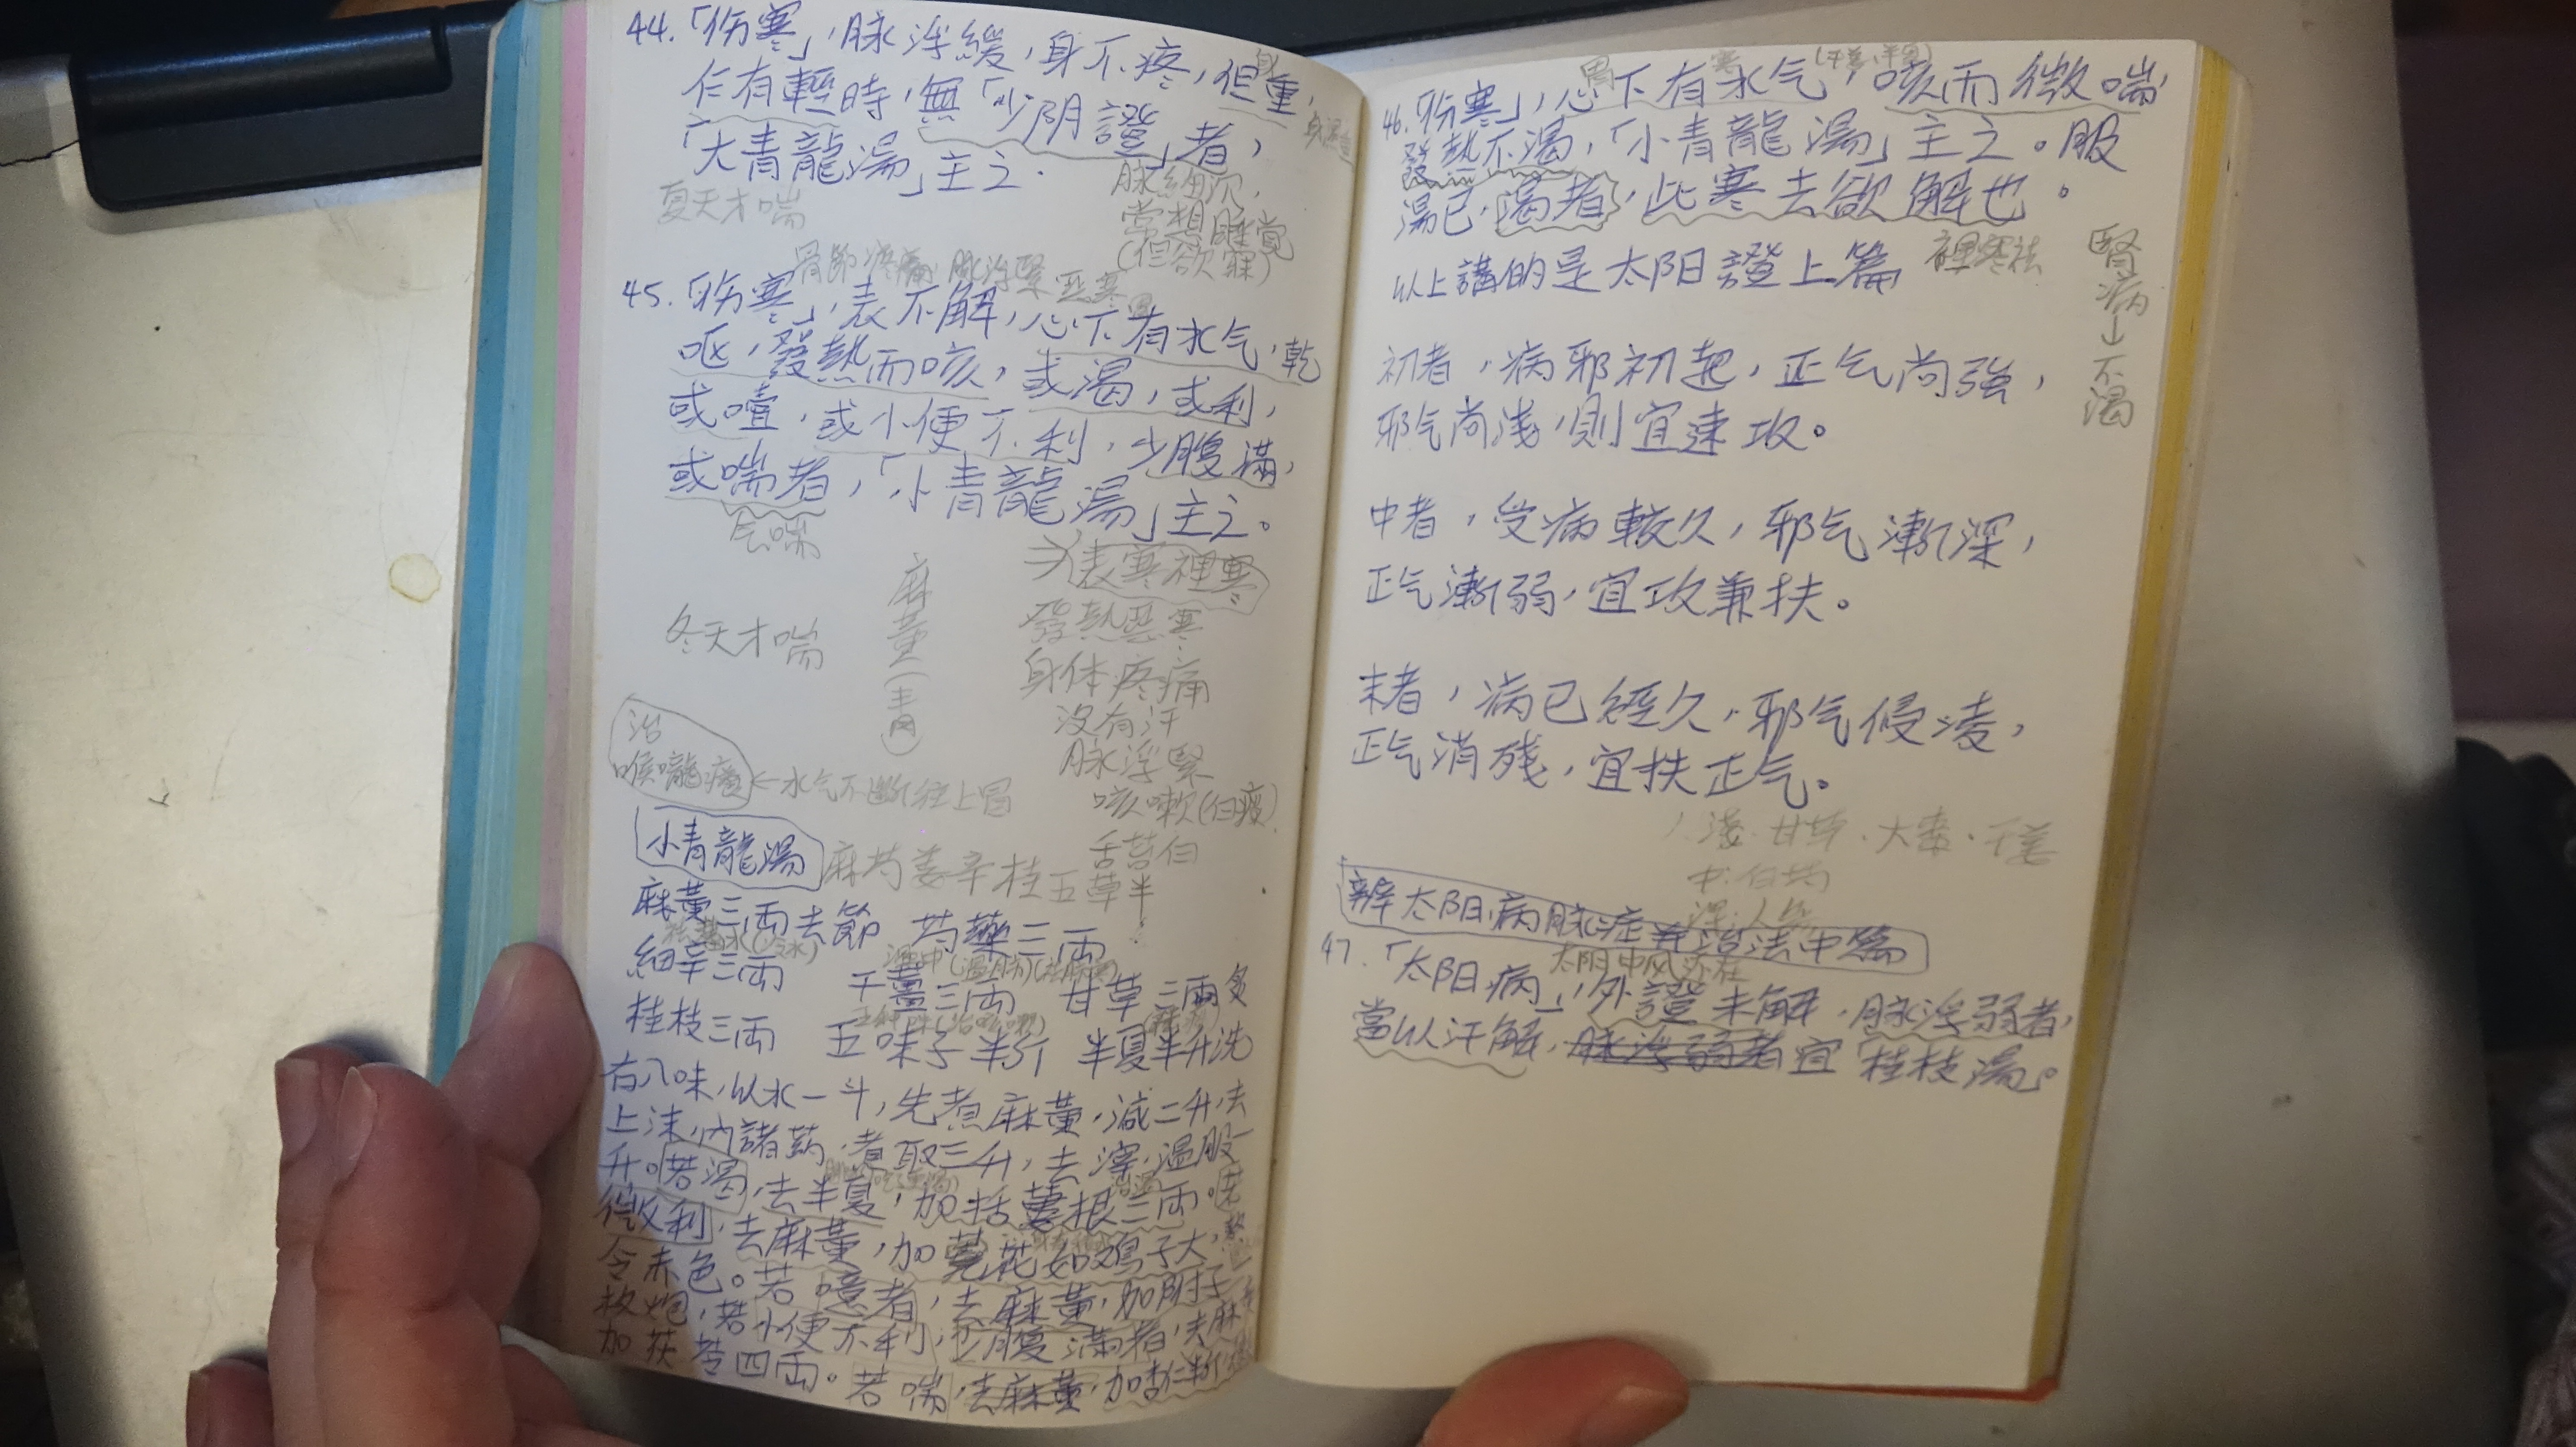 44.「伤寒」,脉浮緩,身不疼,但重,
仁有輕時,無「少阴證」者,
「大青龍湯」主之.
脉細沉,
常想睡覺
(但欲寐)
夏天才喘
骨節疼痛,脉浮緊 恶寒
45.「伤寒」,表不解,心下有水气,乾
呕,發熱而咳,或渴,或利,
或噎,或小便不利,少腹滿,
或喘者,「小青龍湯」主之。
气喘
→表寒裡寒
發熱恶寒
身体疼痛
沒有汗
脉浮緊
咳嗽(白痰)
舌苔白
麻黃(青)
冬天才喘
治
喉嚨癢←水气不斷往上冒
小青龍湯 麻芍姜辛桂五草半
麻黃三両去節 芍藥三両
細辛三両 干薑三両 甘草三両炙
桂枝三両 五味子半斤 半夏半升洗
右八味,以水一斗,先煮麻黃,減二升,去
上沫,內諸药,煮取三升,去滓,温服一
升。若渴,去半夏,加括蔞根三両。若
微利,去麻黃,加蕘花如鸡子大,熬
令赤色。若噎者,去麻黃,加附子一
枚炮,若小便不利,少腹滿者,去麻黃
加茯苓四両。若喘,去麻黃,加杏仁半斤
46.「伤寒」,心下有水气,咳而微喘,
發熱不渴,「小青龍湯」主之。服
湯已,渴者,此寒去欲解也。
裡寒祛
腎病→不渴
以上講的是太阳證上篇
初者,病邪初起,正气尚強,
邪气尚浅,則宜速攻。
中者,受病較久,邪气漸深,
正气漸弱,宜攻兼扶。
末者,病已經久,邪气侵凌,
正气消残,宜扶正气。
浅.甘草.大棗.干姜
中.白芍
深:人参
辨太阳病脉症并治法中篇
47.「太阳病」,外證未解,脉浮弱者,
當以汗解,脉浮弱者宜「桂枝湯」。